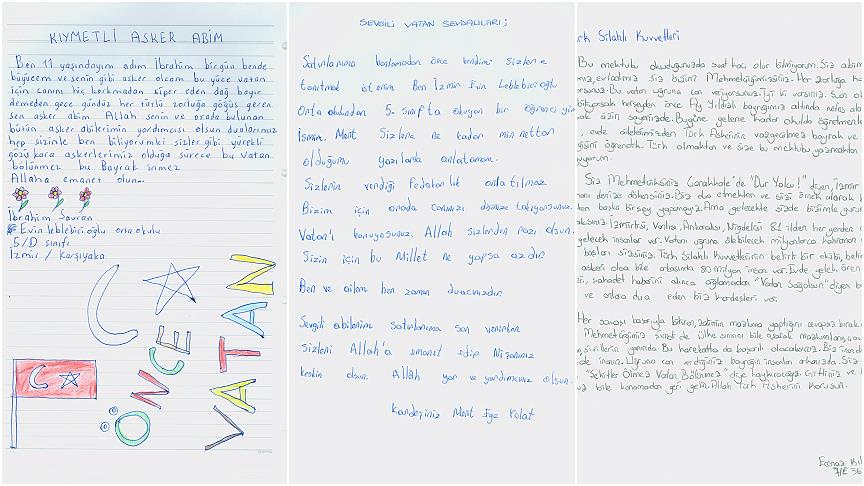 KIYMETLİ ASKER ABİM
Ben 11 yaşındayım adım İbrahim birgün bende
büyücem ve senin gibi asker olcam bu yüce vatan
için canını hiç korkmadan siper eden dağ bayır
demeden gece gündüz her türlü zorluğa göğüs geren
sen asker abim Allah senin ve orada bulunan
bütün asker abilerimin yardımcısı olsun dualarımız
hep sizinle ben biliyorumki sizler gibi yürekli
gözü kara askerlerimiz olduğu sürece bu Vatan
bölünmez bu Bayrak inmez
Allaha emanet olun...
İbrahim Savran
Evin leblebici oğlu orta okulu
5/D sınıfı
İzmir / Karşıyaka
ÖNCE
VATAN
SEVGİLİ VATAN SEVDALILARI;
Satırlarıma başlamadan önce kendimi sizlere
tanıtmak isterim. Ben İzmir Evin Leblebicioğlu
Orta okulundan 5. sınıfta okuyan bir öğrenciyim
İsmim Mert Sizlere ne kadar minnettar
olduğumu yazılarla anlatamam.
Sizlerin verdiği fedakarlık anlatılmaz
Bizim için orada canınızı dişinize takıyorsunuz.
Vatan'ı koruyosunuz. Allah sizlerden razı olsun.
Sizin için bu Millet ne yapsa azdır.
Ben ve ailem her zaman duacınızdır.
Sevgili abilerim satırlarıma son verirken
Sizleri Allah'a emanet edip Nişanınız
keskin olsun. Allah yar ve yardımcınız olsun.
Kardeşiniz Mert Ege Polat
rk Silahlı Kuvvetleri
Bu mektubu okuduğunuzda saat kaç olur bilmiyorum. Siz abim
evladımız siz bizim Mehmetçiğimizsiniz. Her zorluğa
Bu vatan uğruna can veriyorsunuz. İyi ki varsınız.
herşeyden önce Ay Yıldızlı bayrağımız altında nefes
sizin sayenizde. Bugüne gelene kadar okulda öğretmenle
evde ailelerimizden Türk Askerinin vazgeçilmez bayrak ve
öğrendik. Türk olmaktan ve size bu mektubu yazmaktan
yorum.
Siz Mehmetçiksiniz Çanakkale'de "Dur Yolcu!" diyen, İzmir
denize dökensiniz. Biz dua etmekten ve sizi örnek olarak
başka birşey yapamayız. Ama gelecekte sizde bizimle gurur
İzmirlisi, Vanlısı, Ankaralısı, Niğdelisi 81 ilden her yerden
gelecek insanlar var. Vatanı uğruna ölebilecek milyonlarca kahraman
sizsiniz. Türk Silahlı Kuvvetlerinin belirli bir ekibi, belirli
askeri olsa bile arkasında 80 milyon insan var. Evde gelek ören
şahadet haberini alınca ağlamadan "Vatan Sağolsun" diyen
ve onlara dua eden biz kardeşleri var.
Her savaşı başarıyla bitiren, zalimin mazluma yaptığını cevapsız bırakm
Mehmetçiğimiz şimdi de ülke sınırını bile aşarak
sivillerin yanında. Bu harekatta da başarılı olacaksınız. Biz
inanın. Uğruna can verdiğiniz bayrağın insanları arkanızda. Siz
"Şehitler Ölmez Vatan Bölünmez" diye haykıracağız. Gittiniz ve
bile kanamadan geri gelin. Allah Türk Askerini korusun.
7/E